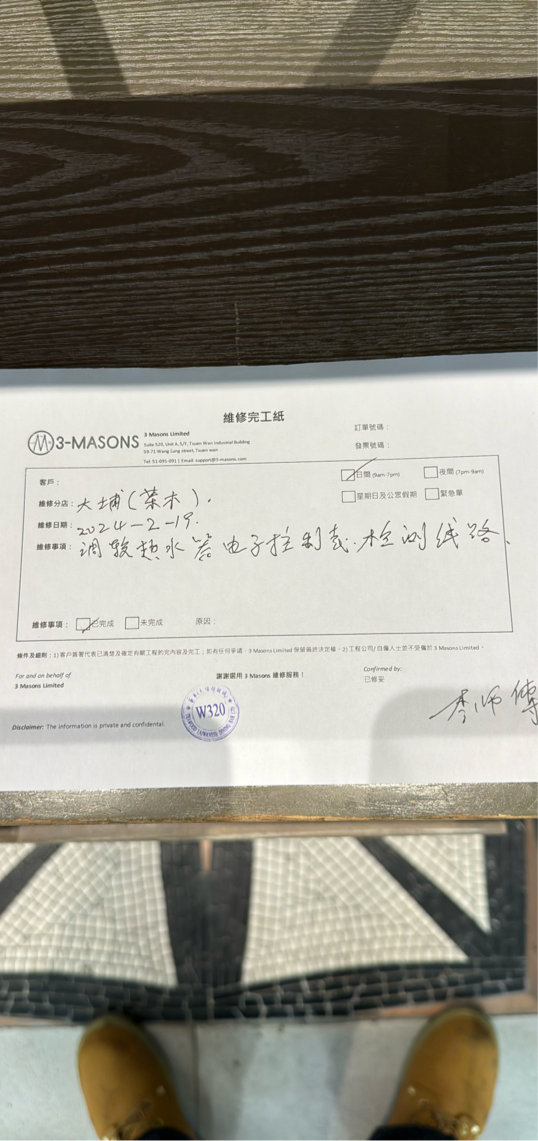 維修完工紙
3-MASONS
3 Masons Limited
Suite 520, Unit A, 5/F, Tsuen Wan Industrial Building
59-71 Wang Lung street, Tsuen wan
Tel: 51-091-091 | Email: support@3-masons.com
訂單號碼：
發票號碼：
客戶：
日間 (9am-7pm)
夜間 (7pm-9am)
維修分店：大埔(菜木).
星期日及公眾假期
緊急單
維修日期：2024-2-19.
維修事項：调較熱水器电子控制 检测线路.
維修事項：
已完成
未完成
原因：
條件及細則：1) 客戶簽署代表已清楚及確定有關工程的完內容及完工；如有任何爭議，3 Masons Limited 保留最終決定權。2) 工程公司/ 自僱人士並不受僱於 3 Masons Limited。
For and on behalf of
3 Masons Limited
謝謝選用 3 Masons 維修服務！
Confirmed by:
已修妥
李师傅
W320
Disclaimer: The information is private and confidential.